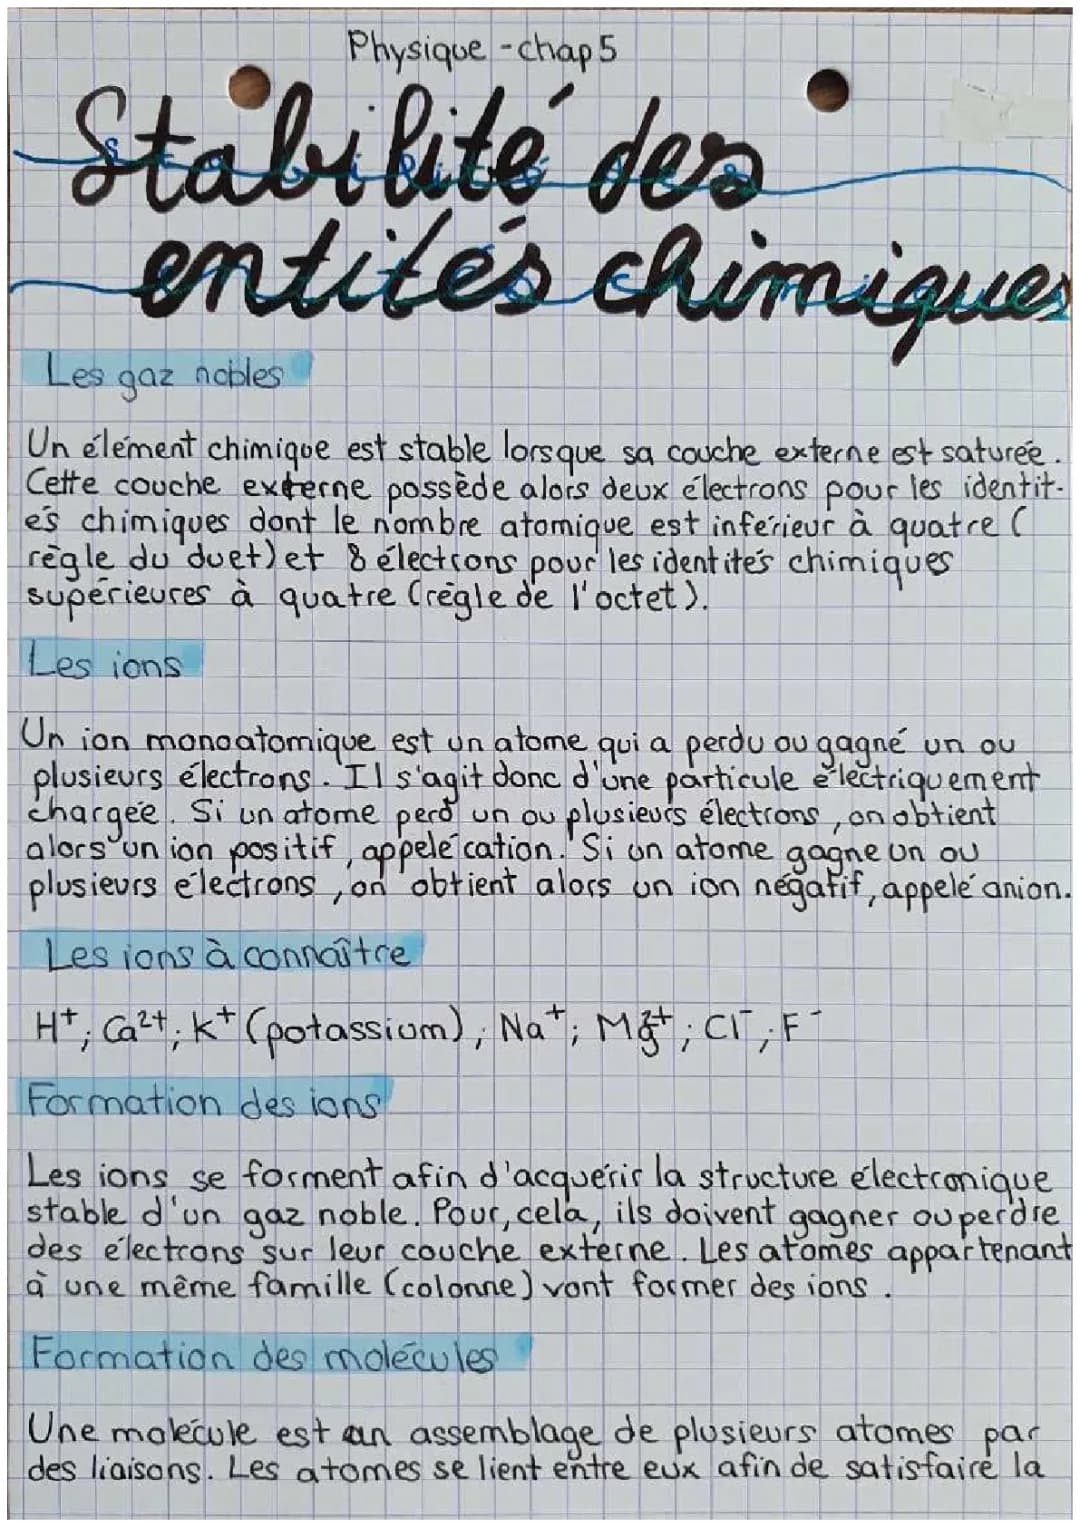 Physique - chap 5
Stabilité des
entités chimiques
Les gaz nobles
Un élément chimique est stable lorsque sa couche externe est saturée.
Cette couche externe possède alors deux électrons pour les identit-
és chimiques dont le nombre atomique est inférieur à quatre (
règle du duet) et 8 électrons pour les identités chimiques
supérieures à quatre (règle de l'octet).
Les ions
Un ion monoatomique est un atome qui a perdu ou gagné un ou
plusieurs électrons. Il s'agit donc d'une particule électriquement
chargée. Si un atome perd un ou plusieurs électrons, on obtient
alors un ion positif, appelé cation. Si un atome gagne un ou
plusieurs électrons, on obtient alors un ion négatif, appelé anion.
Les ions à connaître
H⁺; Ca²⁺; K⁺ (potassium); Na⁺; Mg²⁺; Cl⁻; F⁻
Formation des ions
Les ions se forment afin d'acquérir la structure électronique
stable d'un gaz noble. Pour, cela, ils doivent gagner ou perdre
des électrons sur leur couche externe. Les atomes appartenant
à une même famille (colonne) vont former des ions.
Formation des molécules
Une molécule est un assemblage de plusieurs atomes par
des liaisons. Les atomes se lient entre eux afin de satisfaire la